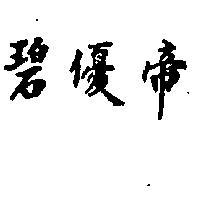 碧優帝